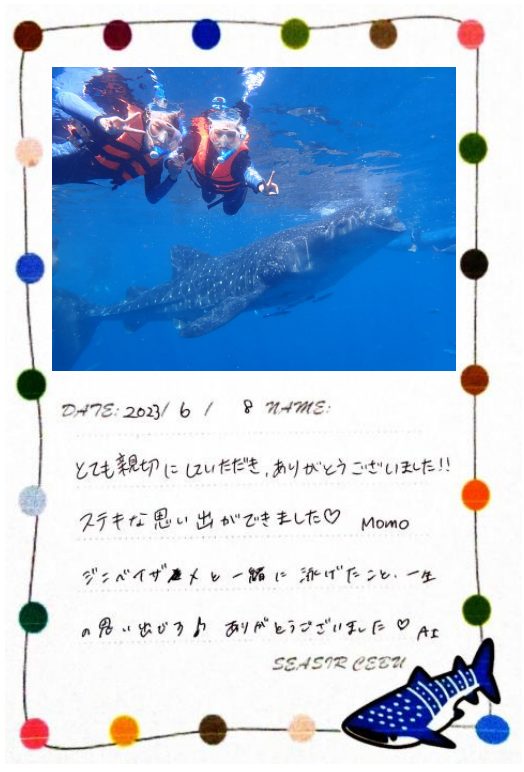 DATE: 2023/ 6 / 8 NAME:
とても親切にしていただき、ありがとうございました!!
ステキな思い出ができました♡ Momo
ジンベイザメと一緒に泳げたこと、一生
の思い出です♪ ありがとうございました♡ AI
SEASIR CEBU